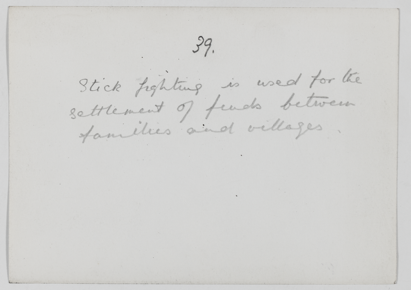 39.
Stick fighting is used for the
settlement of feuds between
families and villages.